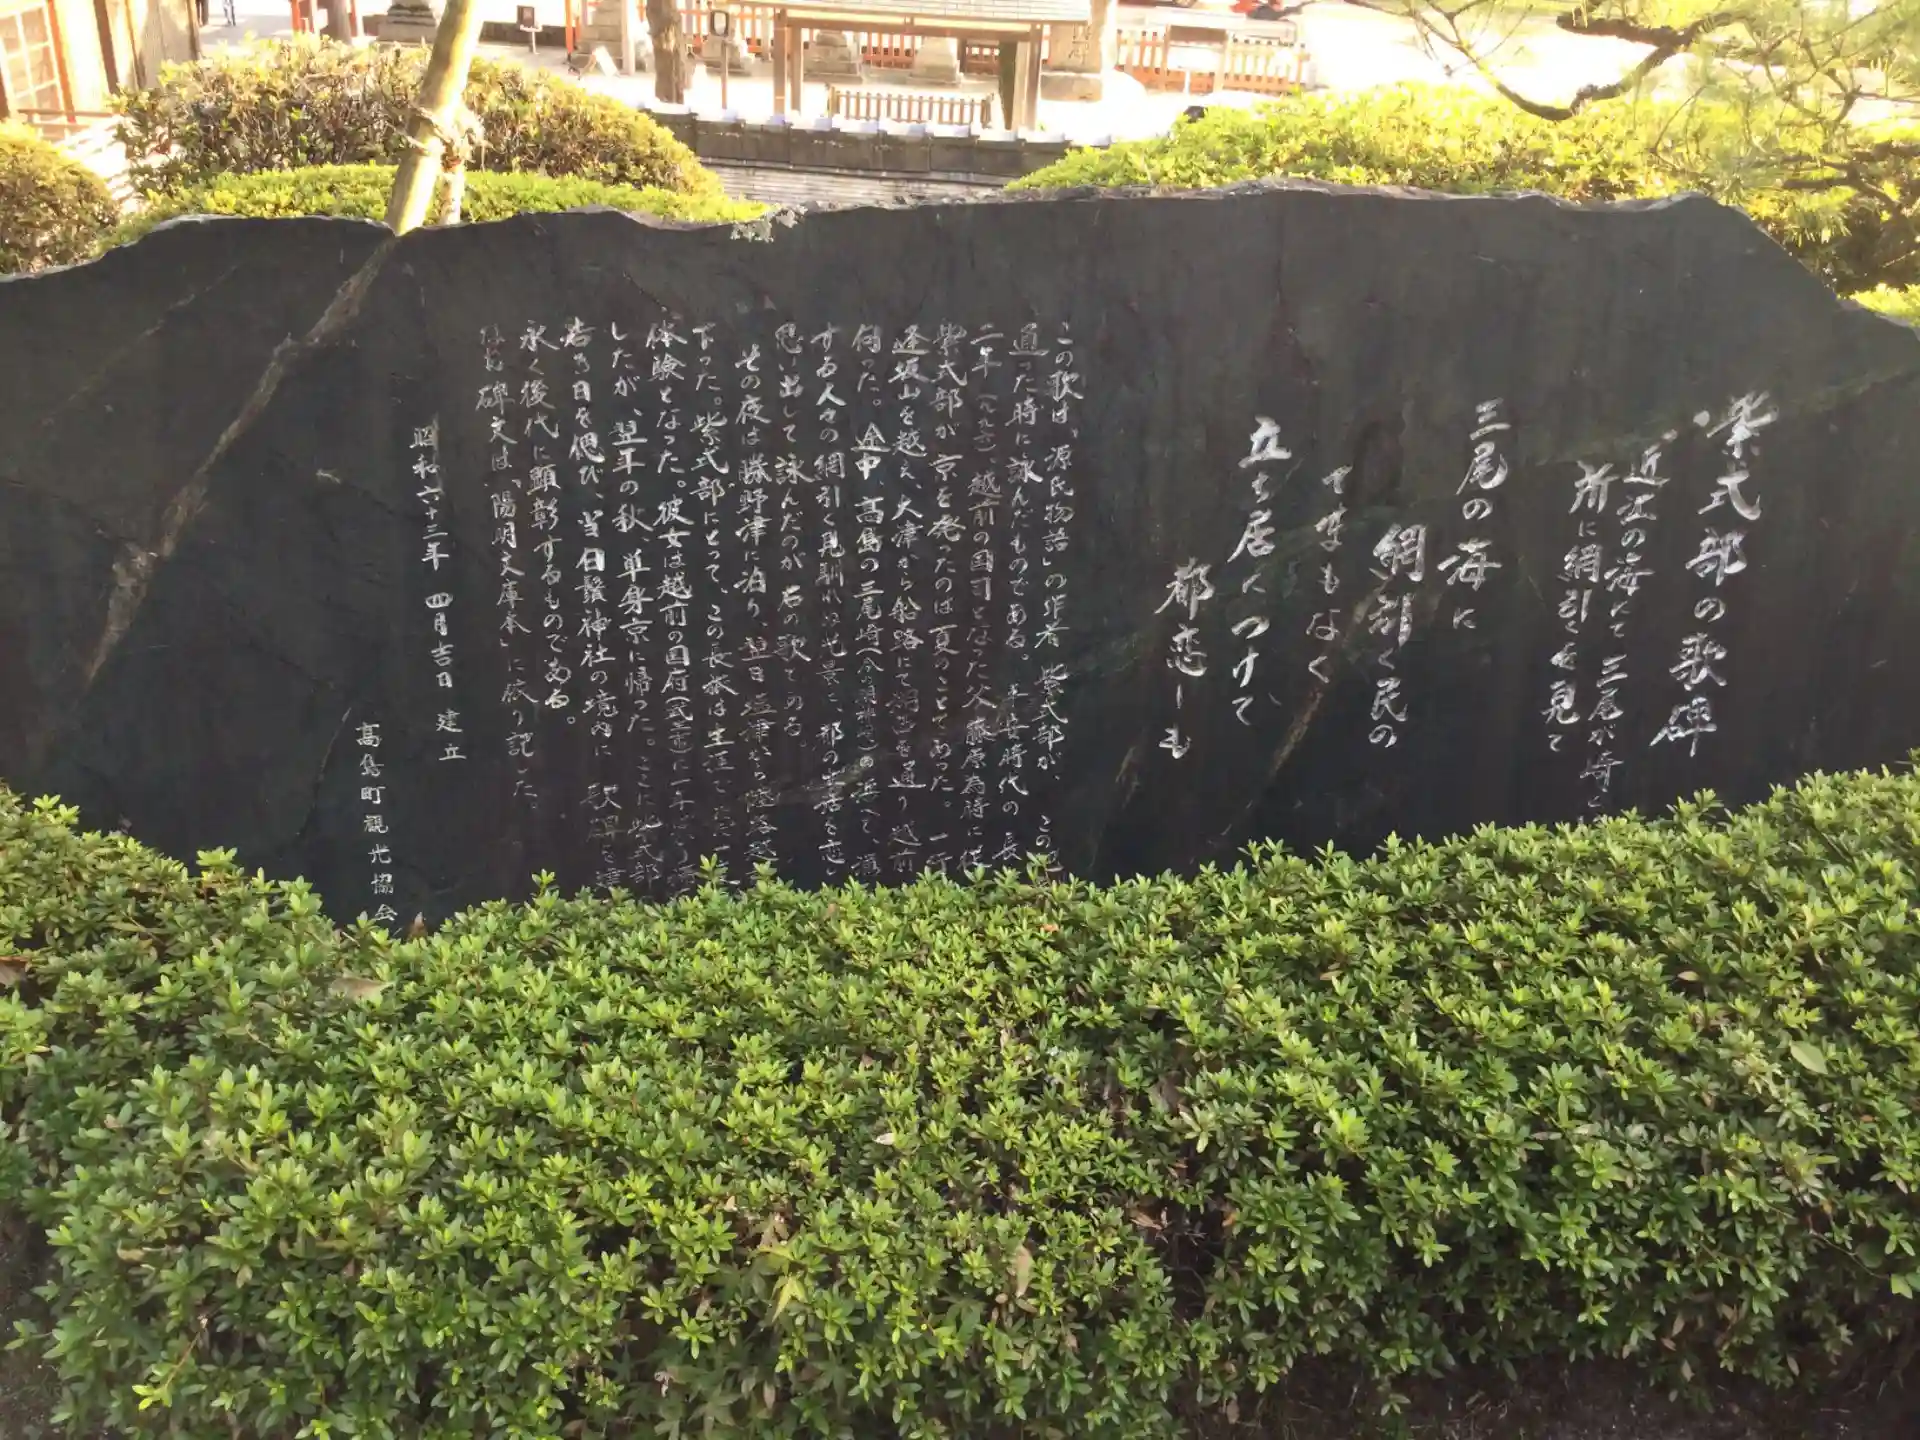 紫式部の歌碑
近江の海にて三尾が崎と
所に網引くを見て
三尾の海に
網引く民の
てまもなく
立ち居につけて
都恋しも
この歌は、「源氏物語」の作者 紫式部が、この
通った時に詠んだものである。平安時代の 長
二年(九九六)越前の国司となった父藤原為時に従
紫式部が 京を発ったのは夏のことであった。一行
逢坂山を越え、大津から船路にて湖西を通り越前
向った。途中、高島の三尾崎(今の明神崎)の浜べで、漁
する人々の網引く見馴れぬ光景に、都の生活を恋し
思い出して 詠んだのが 右の歌である。
その夜は勝野津に泊り、翌日 塩津から陸路越前
下った。紫式部にとって、この長旅は生涯でただ一
体験となった。彼女は越前の国府(武生市)に一年
したが、翌年の秋、単身京に帰った。ここに紫式部
若き日を偲び、当白鬚神社の境内に 歌碑を建
永く後代に顕彰するものである。
なお碑文は「陽明文庫本」に依り記した。
昭和六十三年 四月吉日 建立
高島町観光協会